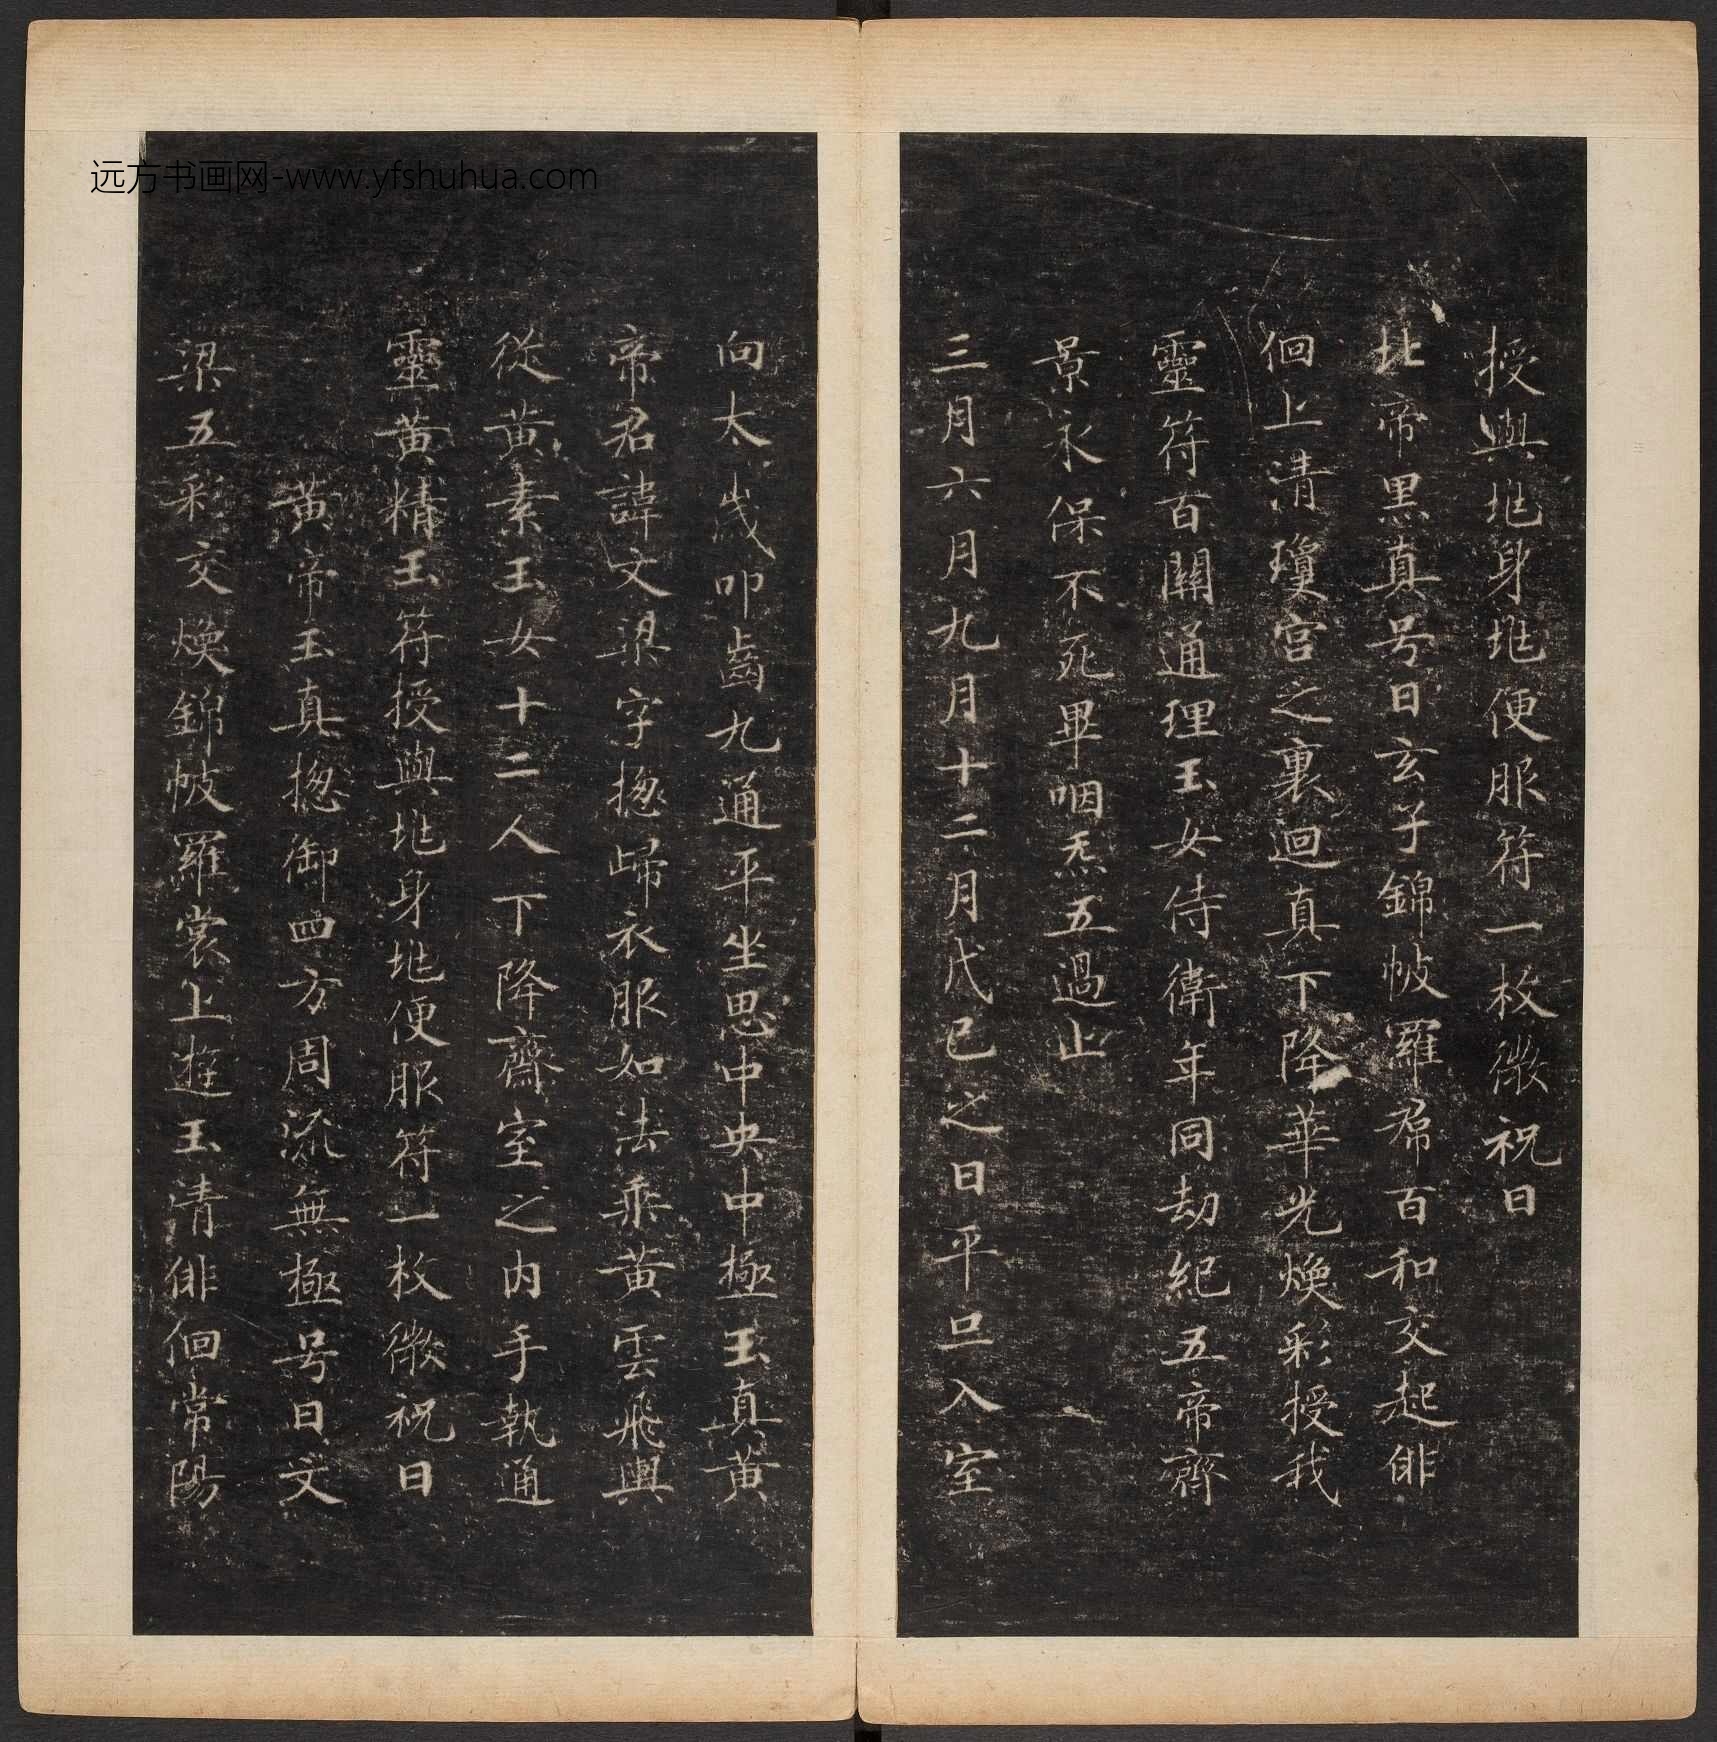 远方书画网-www.yfshuhua.com
授與地身地便服符一枚微祝曰
北帝黑真号曰玄子錦帔羅帬百和交起俳
徊上清瓊宫之裏迴真下降華光煥彩授我
靈符百關通理玉女侍衛年同劫紀五帝齊
景永保不死畢咽炁五過止
三月六月九月十二月戊己之日平旦入室
向太歲叩齒九通平坐思中央中極玉真黄
帝君諱文梁字揔歸衣服如法乘黄雲飛輿
從黄素玉女十二人下降齋室之内手執通
靈黄精玉符授與地身地便服符一枚微祝曰
黄帝玉真揔御四方周流無極号曰文
梁五彩交煥錦帔羅裳上遊玉清俳徊常陽